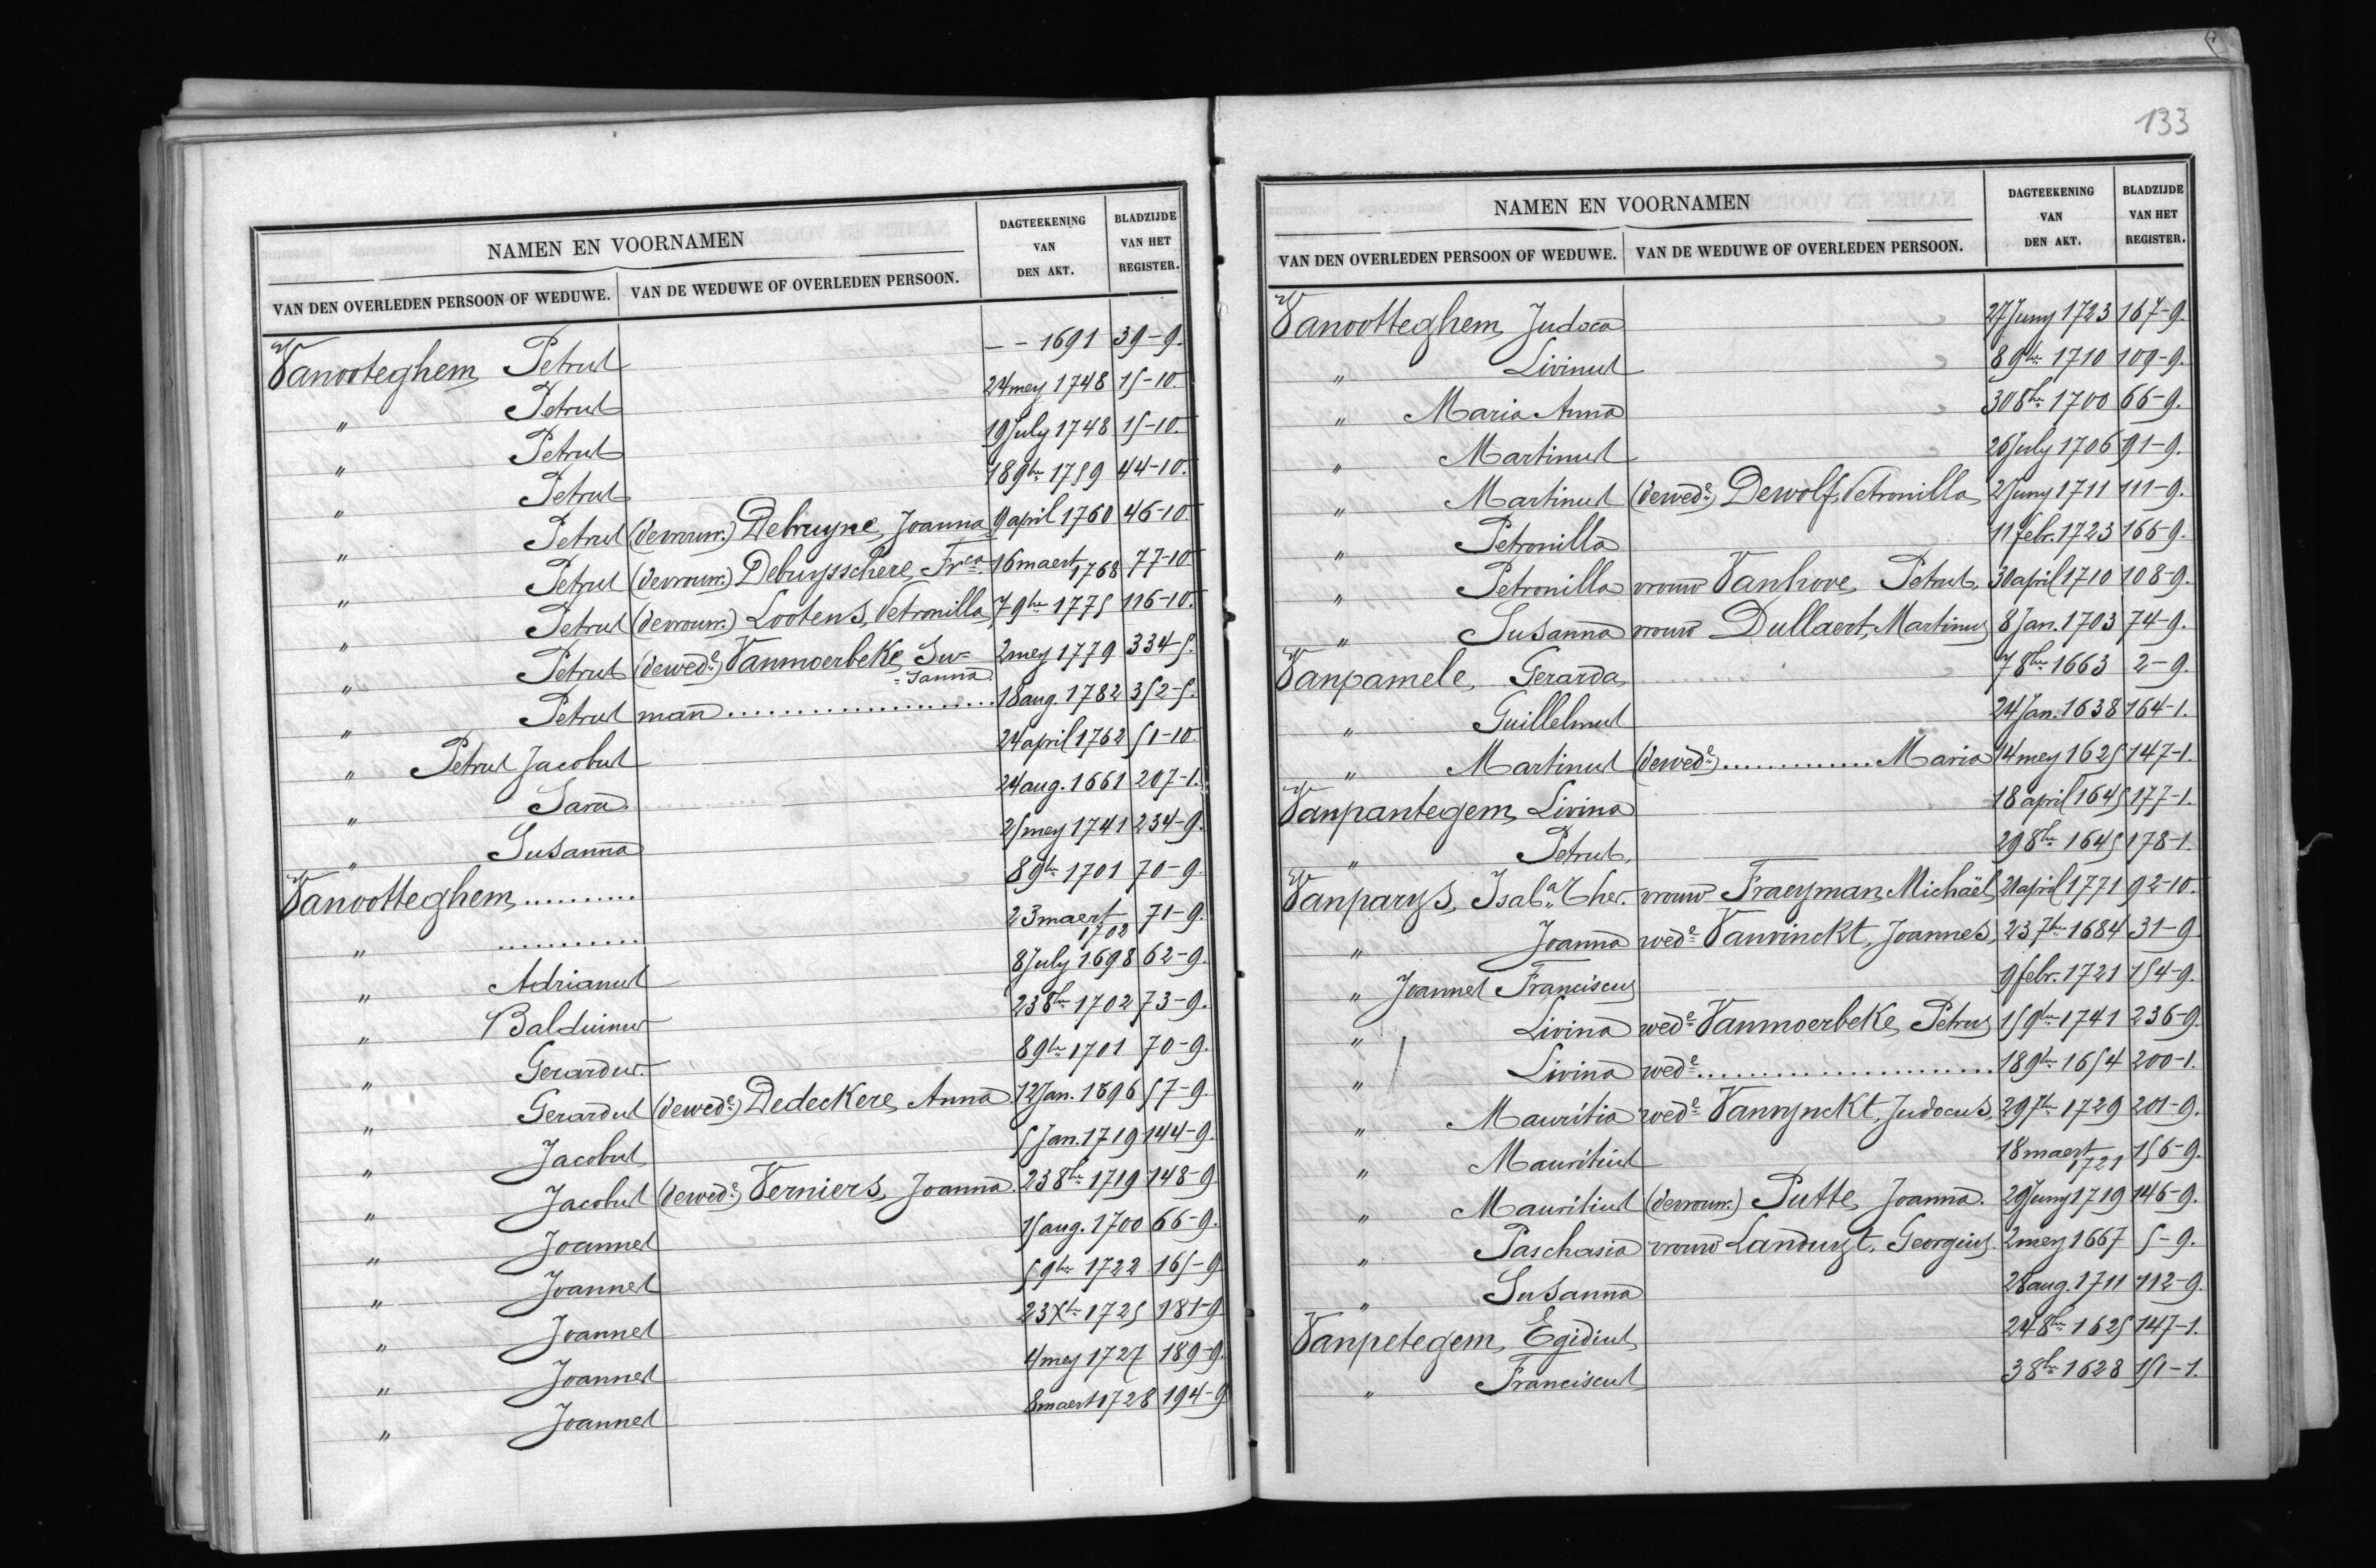 NAMEN EN VOORNAMEN
DAGTEEKENING VAN DEN AKT.
BLADZIJDE VAN HET REGISTER.
VAN DEN OVERLEDEN PERSOON OF WEDUWE. VAN DE WEDUWE OF OVERLEDEN PERSOON.
Vanooteghem Petrus -- 1691 39-9.
" Petrus 24 mey 1748 15-10.
" Petrus 19 July 1748 15-10.
" Petrus 18 9bre 1759 44-10.
" Petrus (devrouw.) Debruyne, Joanna 9 april 1760 46-10.
" Petrus (devrouw.) Debuysschere, Frca. 16 maert 1768 77-10.
" Petrus (devrouw.) Lootens, Petronilla 7 9bre 1775 116-10.
" Petrus (dewede.) Vanmoerbeke, Su=
=sanna 2 mey 1779 334-5.
" Petrus man .................... 18 aug. 1782 352-5.
" Petrus Jacobus 24 april 1762 51-10.
" Sara 24 aug. 1661 207-1.
" Susanna 25 mey 1741 234-9.
Vanootteghem, .......... 8 9bre 1701 70-9.
" ............ 23 maert 1702 71-9.
" Adrianus 8 July 1698 62-9.
" Balduinus 23 8bre 1702 73-9.
" Gerardus 8 9bre 1701 70-9.
" Gerardus (dewede.) Dedeckere, Anna 12 Jan. 1696 57-9.
" Jacobus 5 Jan. 1719 144-9.
" Jacobus (dewede.) Verniers, Joanna. 23 8bre 1719 148-9.
" Joannes 15 aug. 1700 66-9.
" Joannes 5 9bre 1722 165-9.
" Joannes 23 Xbre 1725 181-9.
" Joannes 4 mey 1727 189-9.
" Joannes 8 maert 1728 194-9.
133
NAMEN EN VOORNAMEN
DAGTEEKENING VAN DEN AKT.
BLADZIJDE VAN HET REGISTER.
VAN DEN OVERLEDEN PERSOON OF WEDUWE. VAN DE WEDUWE OF OVERLEDEN PERSOON.
Vanootteghem, Judoca 27 Juny 1723 167-9.
" Livinus 8 9bre 1710 109-9.
" Maria Anna 30 8bre 1700 66-9.
" Martinus 26 July 1706 91-9.
" Martinus (dewede.) Dewolf, Petronilla 2 Juny 1711 111-9.
" Petronilla 11 febr. 1723 166-9.
" Petronilla vrouw Vanhove, Petrus, 30 april 1710 108-9.
" Susanna vrouw Dullaert, Martinus 8 Jan. 1703 74-9.
Vanpamele, Gerarda, 7 8bre 1663 2-9.
" Guillelmus 24 Jan. 1638 164-1.
" Martinus (dewede.) ............. Maria 14 mey 1625 147-1.
Vanpantegem, Livina 18 april 1645 177-1.
" Petrus, 29 8bre 1645 178-1.
Vanparys, Isaba. Ther. vrouw Fraeyman, Michaël, 21 april 1771 92-10.
" Joanna wede. Vanvinckt, Joannes, 23 7bre 1684 31-9.
" Joannes Franciscus 9 febr. 1721 154-9.
" Livina wede. Vanmoerbeke, Petrus 15 9bre 1741 236-9.
" Livina wede. ...................... 18 9bre 1654 200-1.
" Mauritia wede. Vanvynckt, Judocus, 29 7bre 1729 201-9.
" Mauritius 18 maert 1721 156-9.
" Mauritius (devrouw.) Putte, Joanna. 29 Juny 1719 146-9.
" Paschasia vrouw Landuyt, Georgius. 2 mey 1667 5-9.
" Susanna 28 aug. 1711 112-9.
Vanpetegem, Egidius, 24 8bre 1625 147-1.
" Franciscus 3 8bre 1628 151-1.